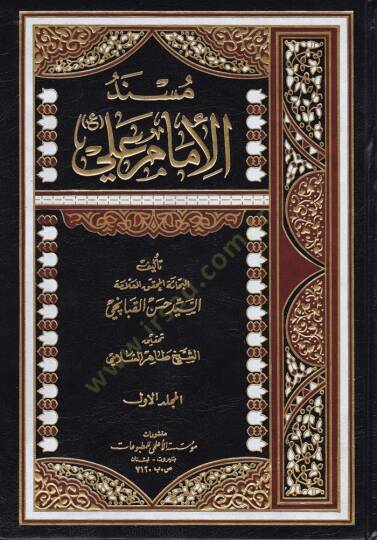 مُسْنَدُ
الإمام علي (ع)
تأليف
البحاثة المحقق العلامة
السيد حسن القبانچي
تحقيق
الشيخ طاهر السلامي
المجلد الأول
منشورات
مؤسسة الأعلمي للمطبوعات
بيروت - لبنان
ص.ب ٧١٢٠